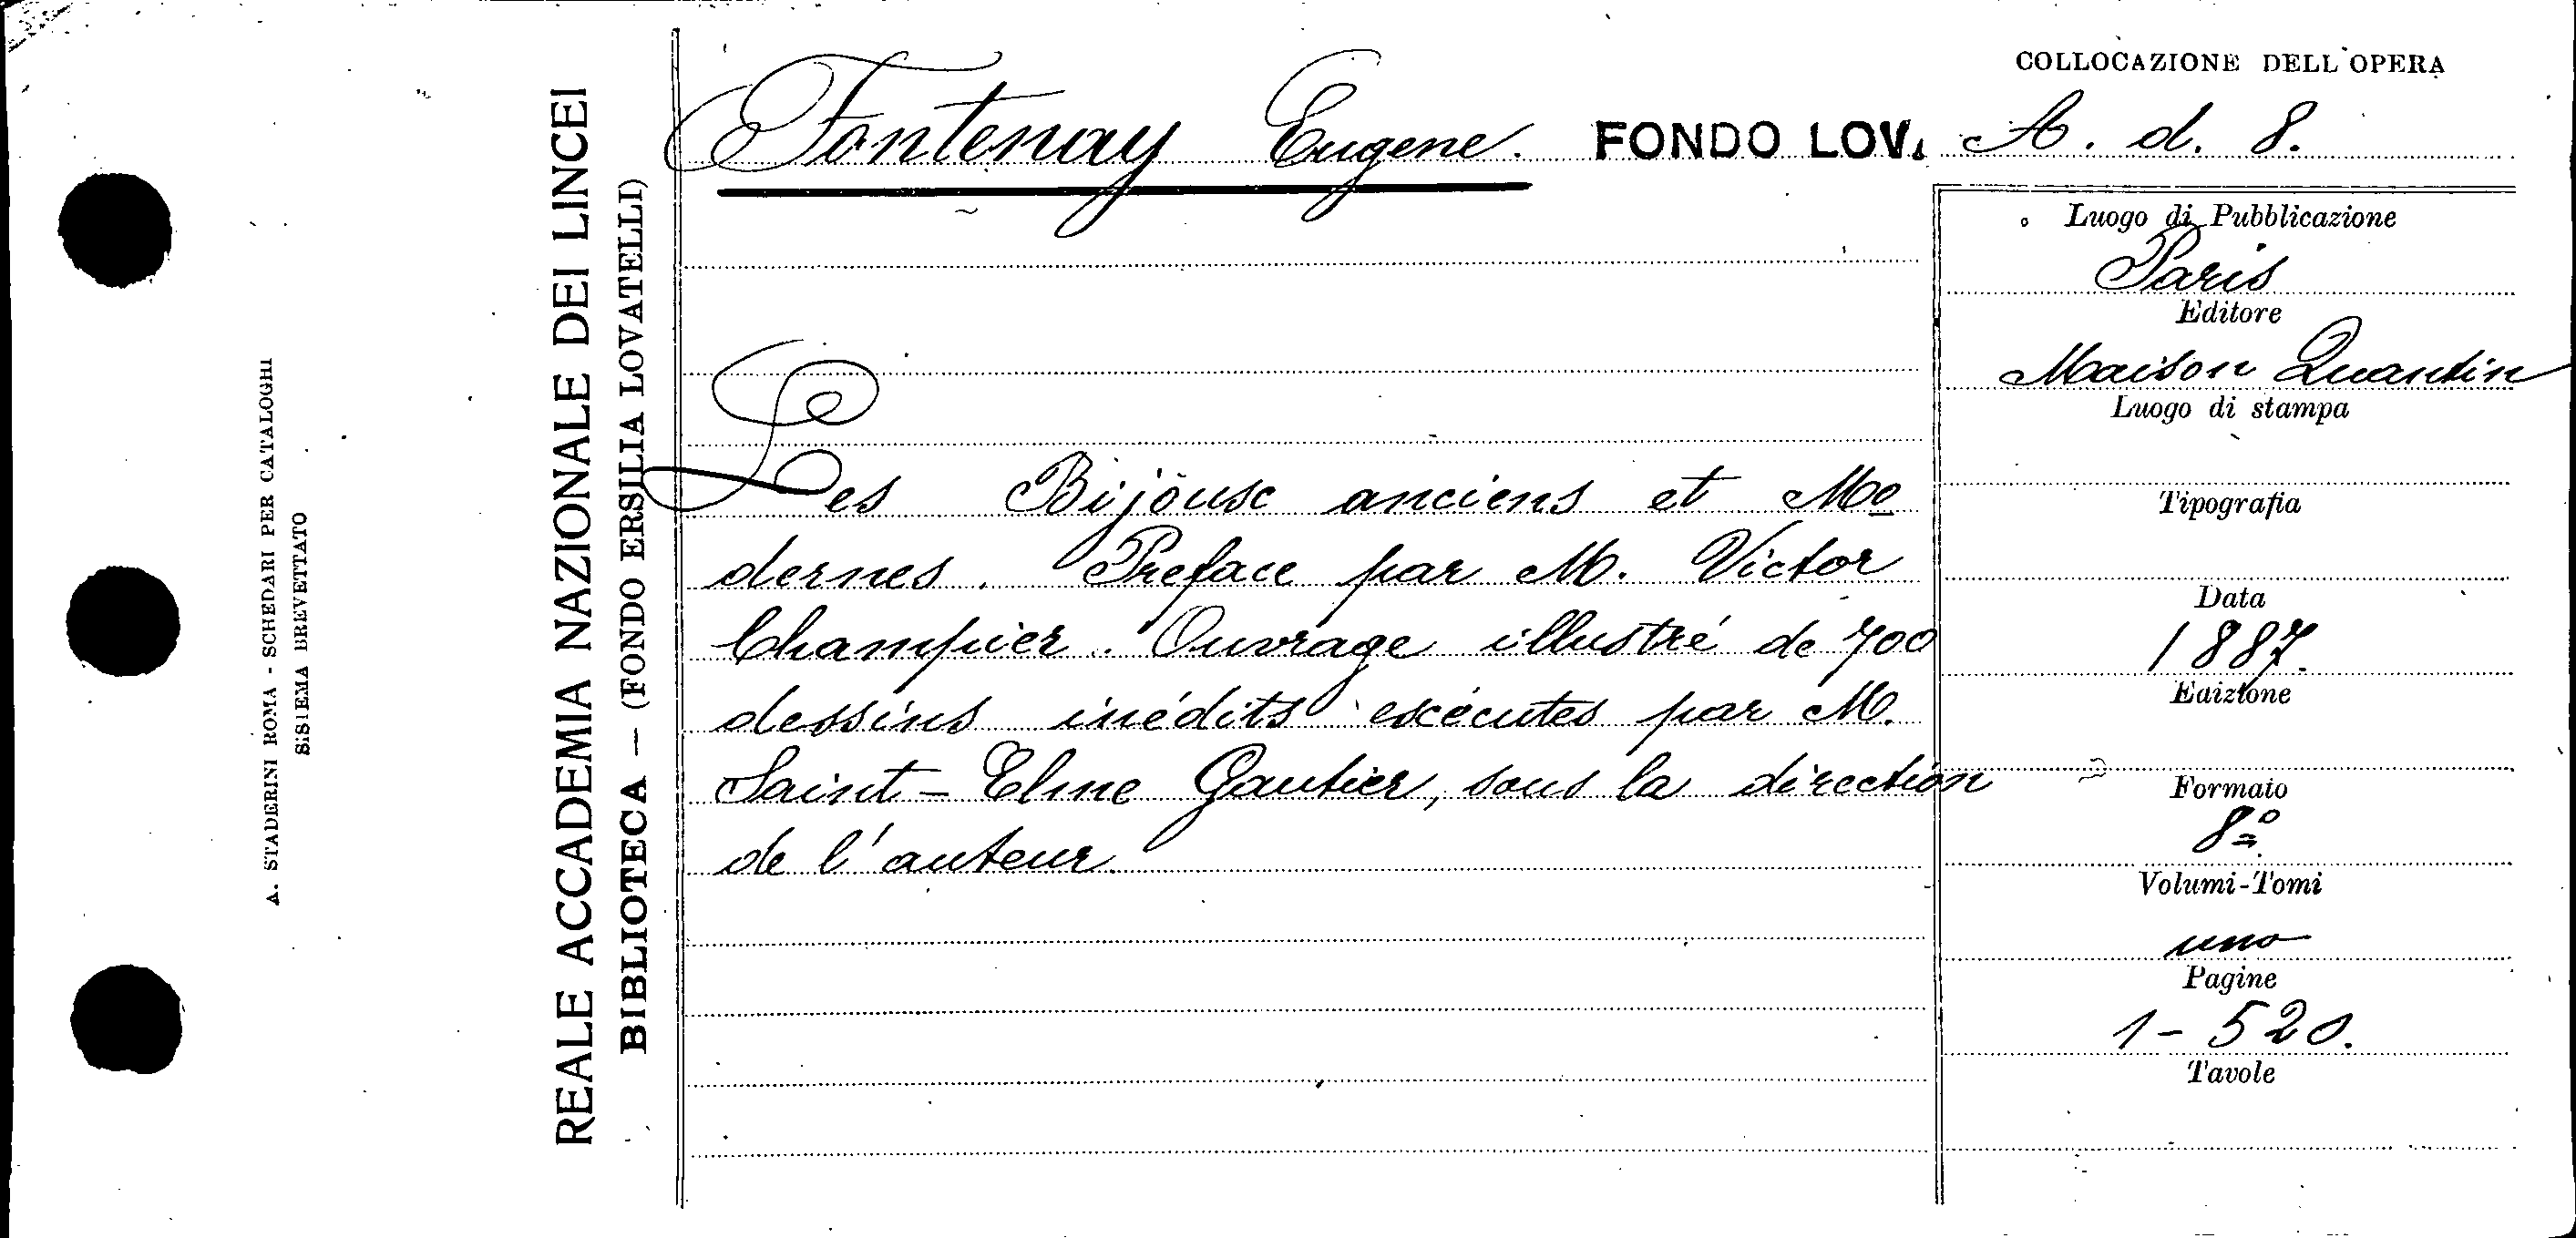 COLLOCAZIONE DELL'OPERA
Fontenay Eugene. FONDO LOV. A. d. 8.
Les Bijoux anciens et Mo
dernes. Preface par M. Victor
Champier. Ouvrage illustré de 700
dessins inédits exécutes par M.
Saint-Elme Gautier, sous la direction
de l'auteur.
Luogo di Pubblicazione
Paris
Editore
Maison Quantin
Luogo di stampa
Tipografia
Data
1887.
Edizione
Formato
8º
Volumi-Tomi
uno
Pagine
1-520.
Tavole
REALE ACCADEMIA NAZIONALE DEI LINCEI
BIBLIOTECA — (FONDO ERSILIA LOVATELLI)
A. STADERINI ROMA - SCHEDARI PER CATALOGHI
SISTEMA BREVETTATO